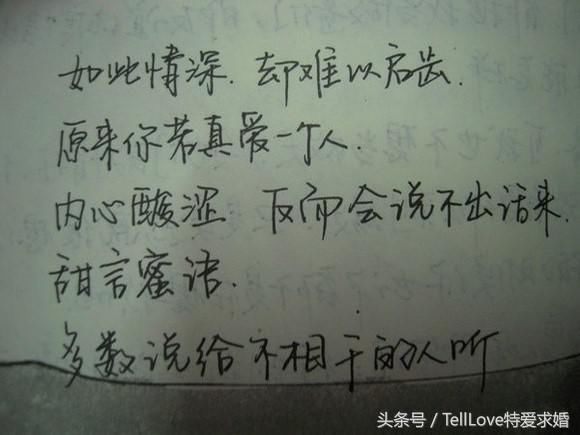 如此情深.却难以启齿.
原来你若真爱一个人.
内心酸涩 反而会说不出话来.
甜言蜜语.
多数说给不相干的人听
头条号 / TellLove特爱求婚